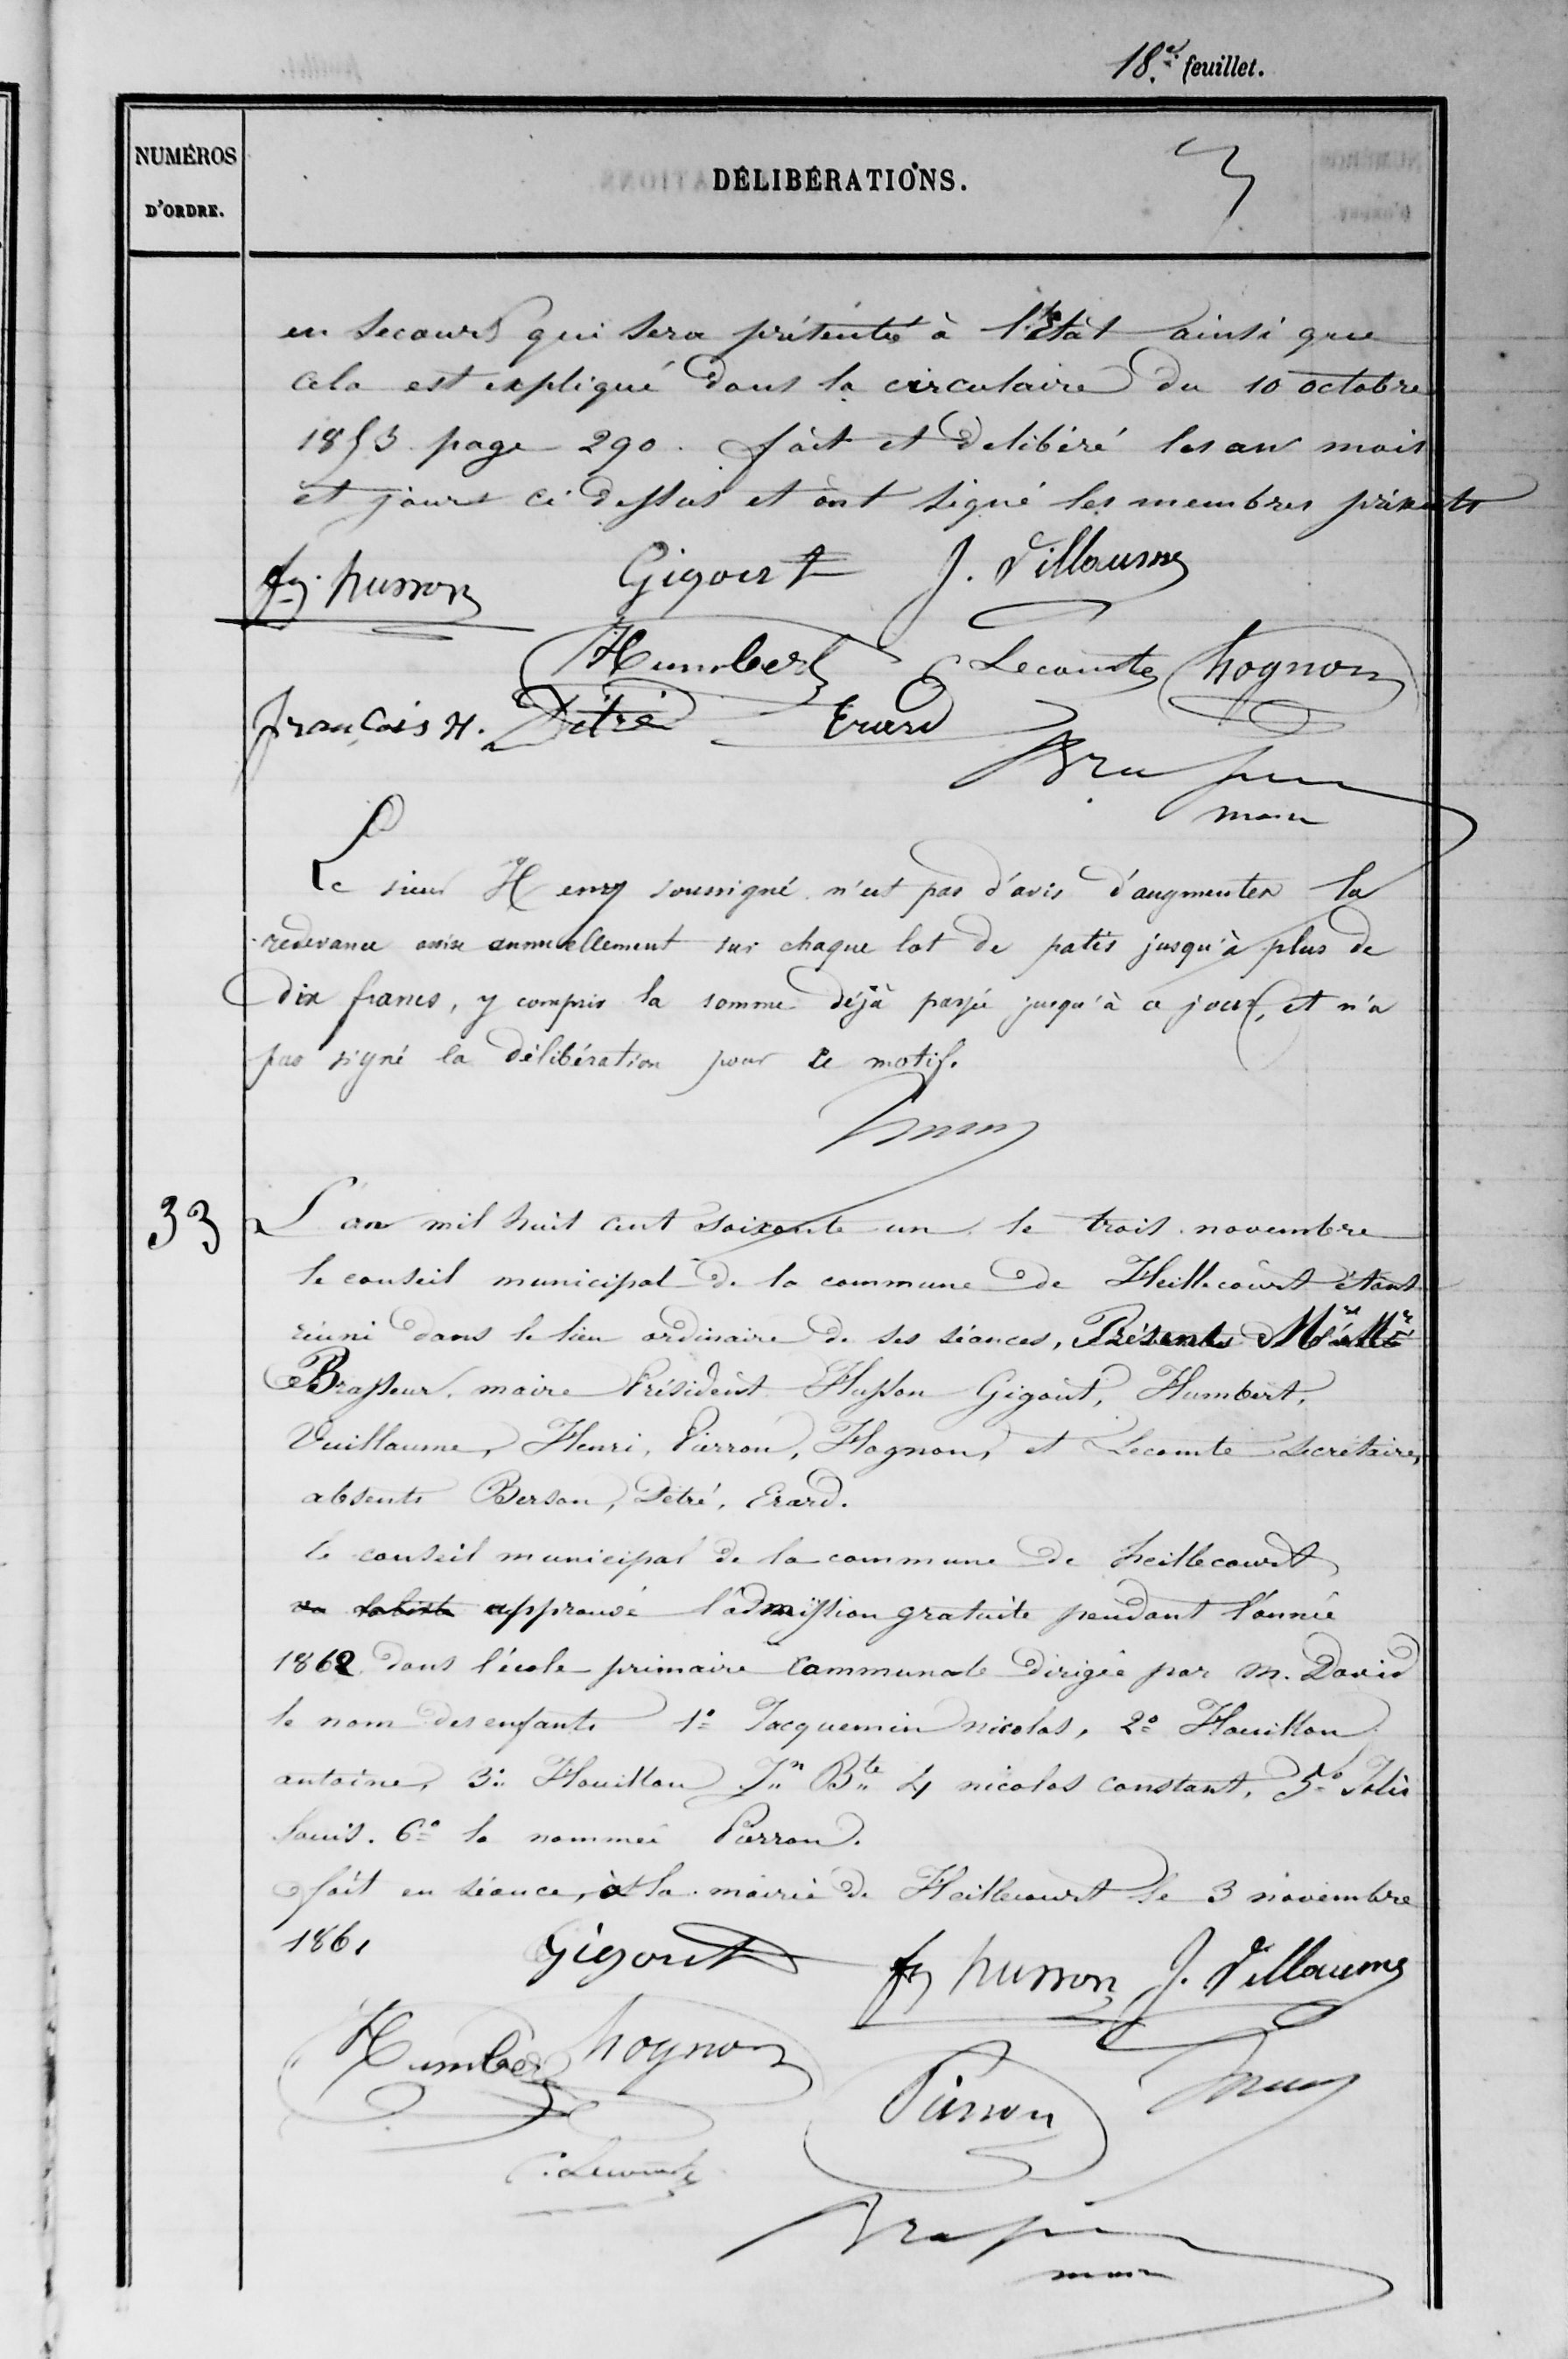 18.e feuillet.
NUMÉROS
D'ORDRE.
DÉLIBÉRATIONS.
3
en secours qui sera présenté à l'état ainsi que
cela est expliqué dans la circulaire du 10 octobre
1853 page 290. fait et delibéré les an mois
et jour ci dessus et ont signé les membres présents
husson
Gigout J. Villaume
Humbert Lecomte hognon
françois H. Détré Erard
Brasseur
maire
Le sieur Henry soussigné n'est pas d'avis d'augmenter la
redevance assise annuellement sur chaque lot de patis jusqu'à plus de
dix francs, y compris la somme déjà payée jusqu'à ce jour, et n'a
pas signé la délibération pour ce motif.
henry
33
L'an mil huit cent soixante un le trois novembre
le conseil municipal de la commune de Heillecourt étant
réuni dans le lieu ordinaire de ses séances, Présents
Brasseur, maire Président Husson Gigout, Humbert,
Vuillaume, Henri, Pierron, Hognon, et Lecomte secrétaire,
absents Berson, Détré, Erard.
le conseil municipal de la commune de heillecourt
approuve l'admission gratuite pendant l'année
1862 dans l'école primaire communale dirigée par m. David
le nom des enfants 1º Jacquemin nicolas, 2º Houillon
antoine, 3º Houillon Jn Bte 4 nicolas constant, 5º
Louis. 6º la nommée Pierron.
fait en séance, à la mairie de Heillecourt le 3 novembre
1861
Gigout husson J. Villaume
Humbert hognon
Pierron henry
C. Lecomte
Brasseur
maire